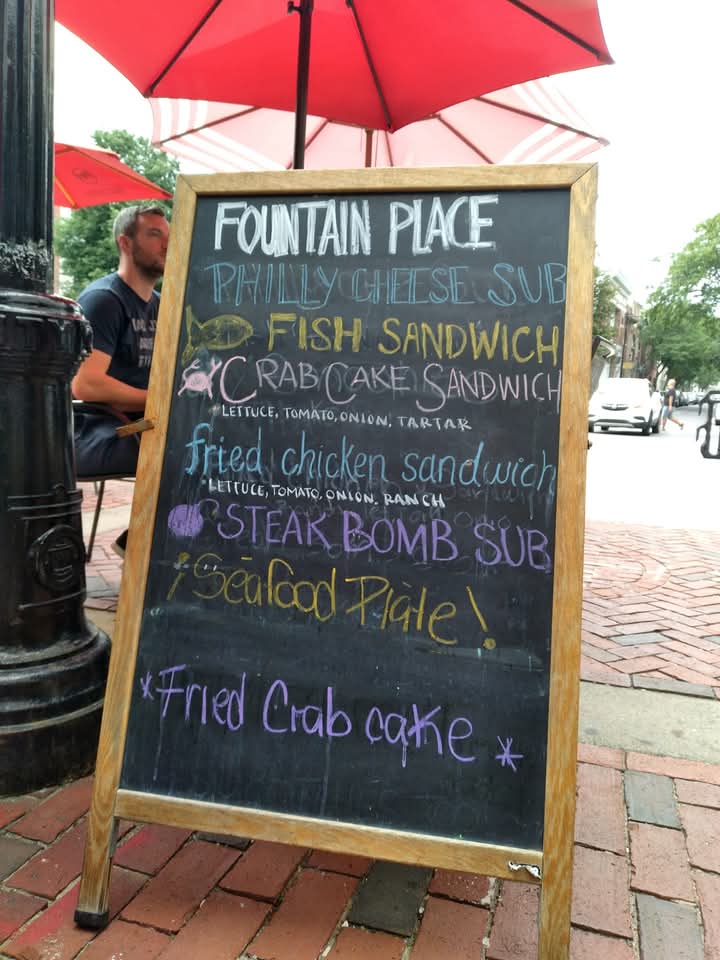 FOUNTAIN PLACE
PHILLY CHEESE SUB
FISH SANDWICH
CRAB CAKE SANDWICH
LETTUCE, TOMATO, ONION, TARTAR
fried chicken sandwich
LETTUCE, TOMATO, ONION, RANCH
STEAK BOMB SUB
¡Seafood Plate!
*Fried Crab cake*